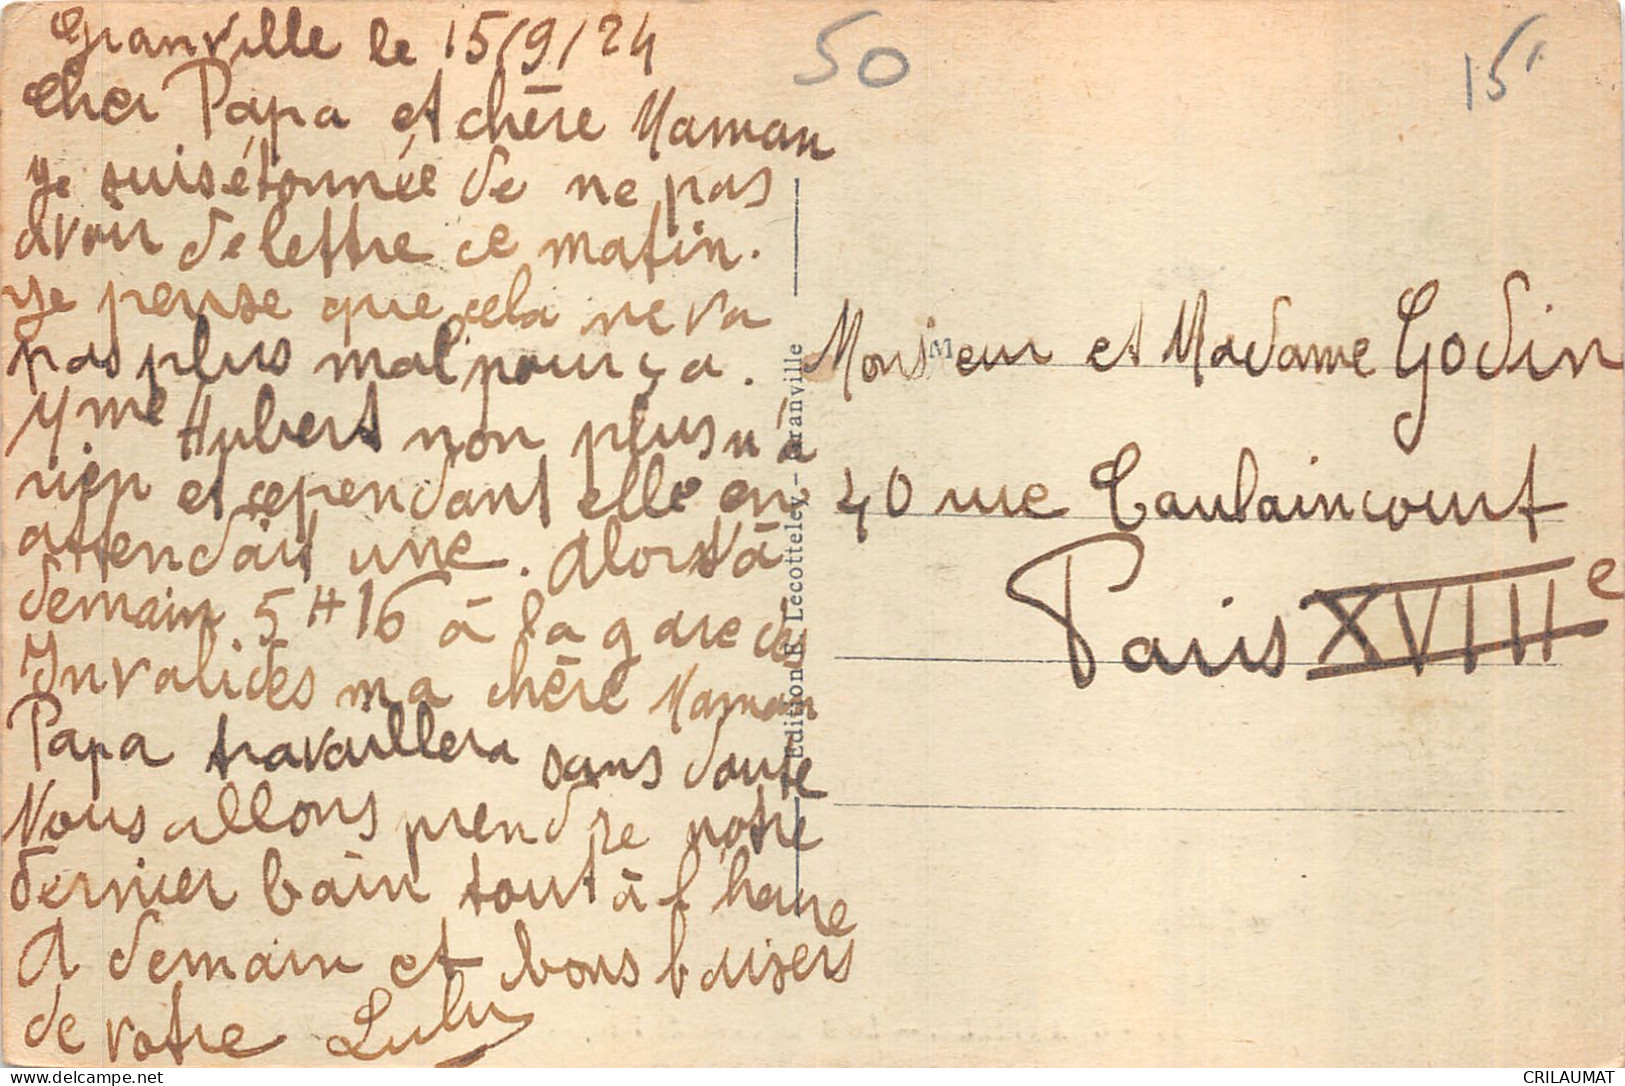 Granville le 15/9/24
50
15'
Cher Papa et chère Maman
Je suis étonnée de ne pas
avoir de lettre ce matin.
Je pense que cela ne va
pas plus mal pour ça.
Mme Hubert non plus n'a
rien et cependant elle en
attendait une. Alors à
demain 5H16 à la gare des
Invalides ma chère Maman
Papa travaillera sans doute
Nous allons prendre notre
dernier bain tout à l'heure
A demain et bons baisers
de votre Lulu
Edition E. Lecotteley - Granville
Monsieur et Madame Godin
40 rue Caulaincourt
Paris XVIIIe
CRILAUMAT